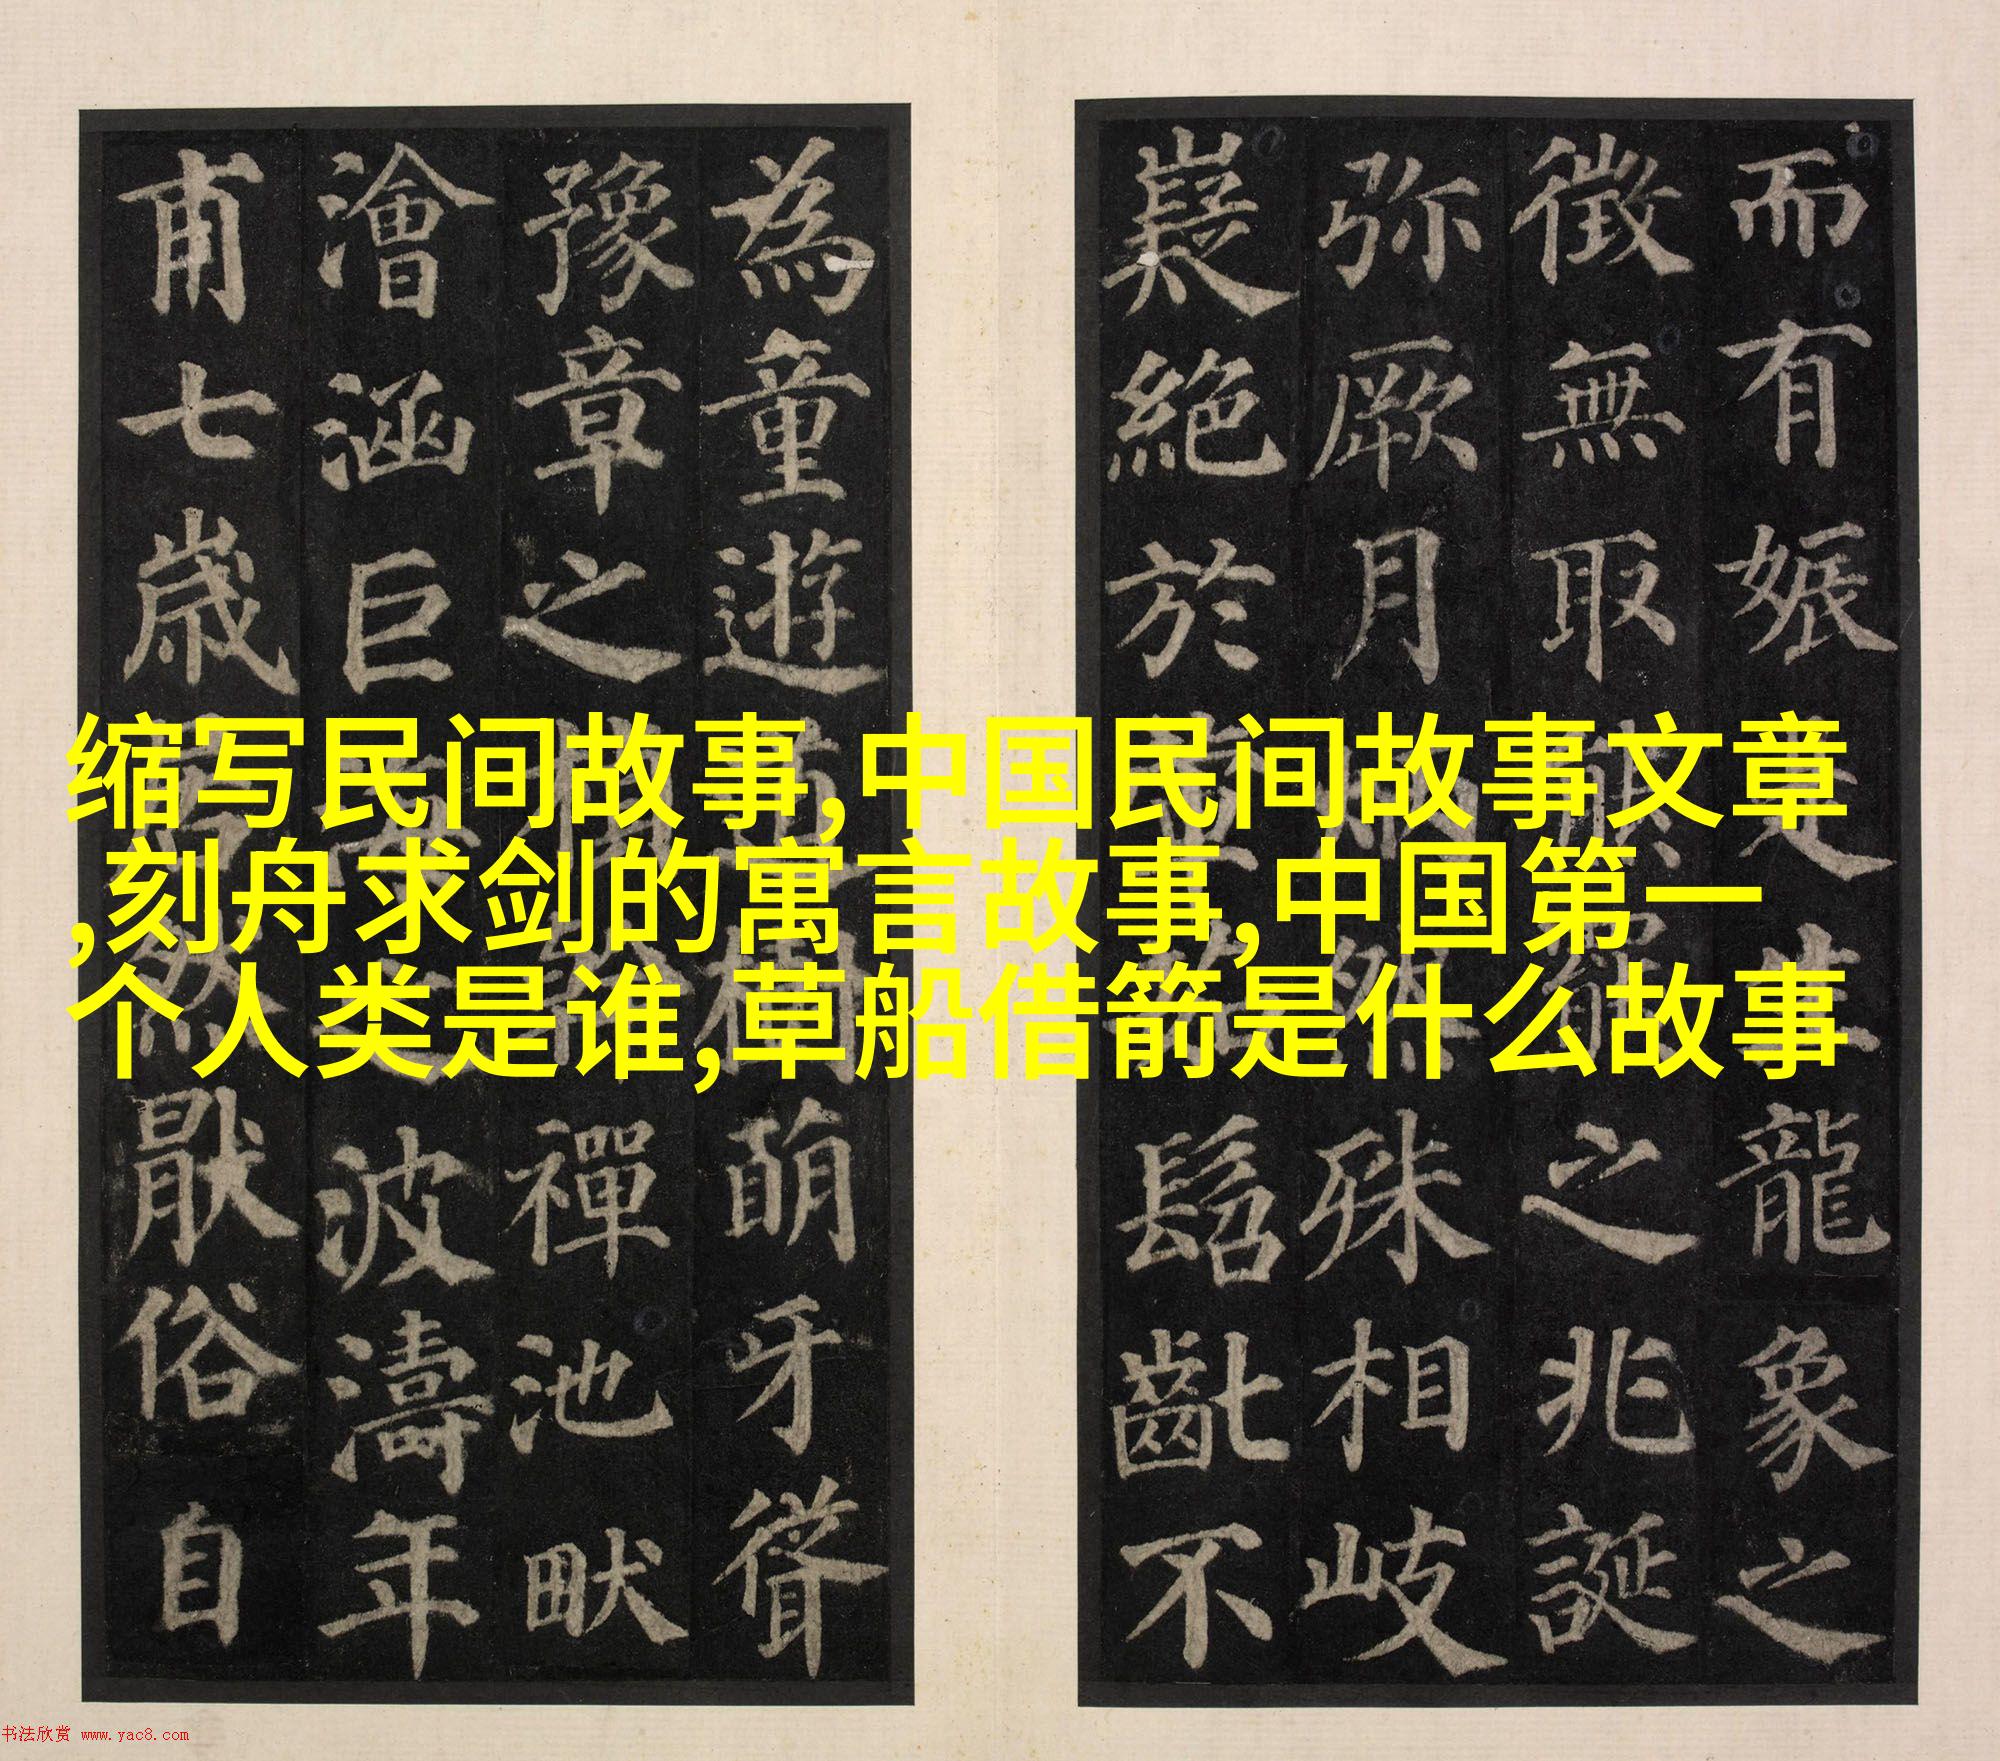 而有娠
龍象之
徵無取
之兆誕
弥厥月
殊相岐
嶷絶於
髫齔不
為童遊
萌牙聳
豫章之
禪池畎
澮涵巨
波濤年
甫七歳
猒俗自
缩写民间故事,中国民间故事文章
,刻舟求剑的寓言故事,中国第一
个人类是谁,草船借箭是什么故事
书法欣赏 www.yac8.com